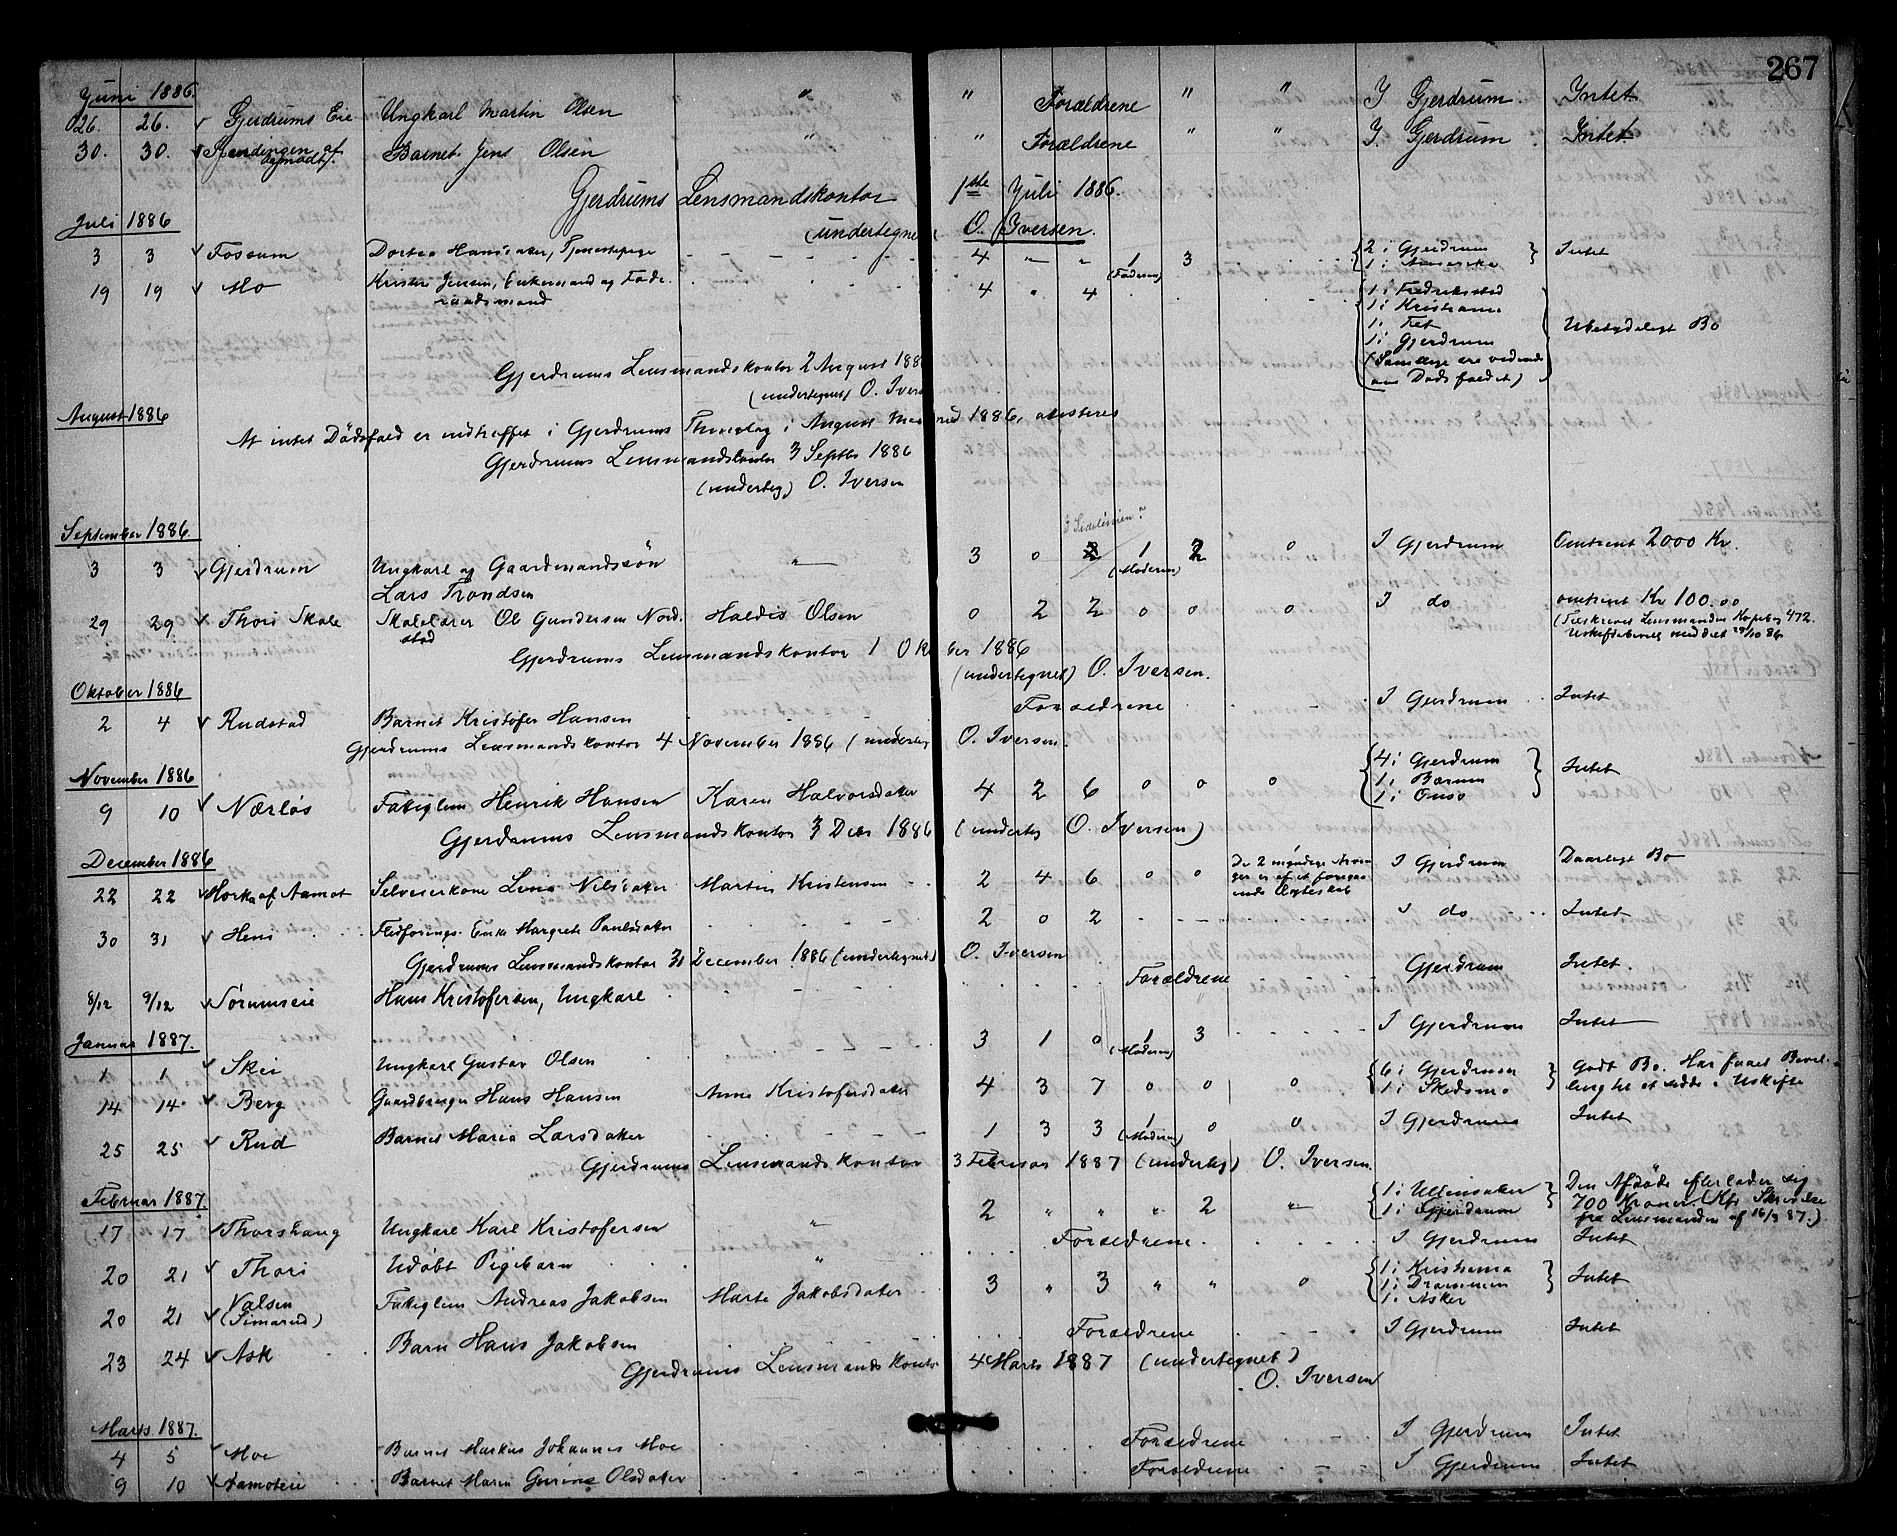 267
Juni 1886.
26. 26. Gjerdrums Eie Ungkarl Martin Olsen " " " Forældrene " " I Gjerdrum. Intet
30. 30. af Barnet Jens Olsen " " Forældrene " " I Gjerdrum Intet
Gjerdrums Lensmandskontor 1ste Juli 1886.
(undertegnet O. Iversen.
Juli 1886
3 3 Fossum Dortea Hansdater, Tjenestepige 4 " " 1 3 {2 i Gjerdrum } Intet
(Faderen) 1 i Amerika
19 19 Mo Jensen, Enkemand og Føde 4 " 4 {1 i Fredriksstad
raadsmand 1 i Kristiania
1 i Fet Ubetydeligt Bo
1 i Gjerdrum
(Samtlige ere
om Dødsfaldet)
Gjerdrums Lensmandskontor 2 August 188
(undertegnet) O. Ivers
August 1886
At intet Dødsfald er indtruffet i Gjerdrums Thinglag i August Maaned 1886, attesteres
Gjerdrums Lensmandskontor 3 Septbr 1886
(underteg) O. Iversen
September 1886.
3 3 Gjerdrum Ungkarl og Gaardmandssøn " 3 0 2 1 2 0 I Gjerdrum Omtrent 2000 Kr.
Lars Trondsen (Moderen)
29 29 Thori Skole Skolelærer Ole Gundersen Nord- Haldis Olsen 0 2 2 0 0 0 I do omtrent Kr 100.00
stad (Tilskrevet Lensmanden Kopibog 472.
Uskiftebevil meddelt 29/10 86
Gjerdrums Lensmandskontor 1 Ok ber 1886
(undertegnet) O. Iversen.
Oktober 1886
2 4 Rudstad Barnet Kristofer Hansen Forældrene I Gjerdrum Intet
Gjerdrums Lensmandskontor 4 November 1886 (underteg O. Iversen.
November 1886
9 10 Nærløs Fattiglem Henrik Hansen Karen Halvorsdater 4 2 6 0 0 0 {4 i Gjerdrum } Intet
1 i Bærum
1 i
Gjerdrums Lensmandskontor 3 Decbr 1886 (underteg O. Iversen)
December 1886
22 22 af Aamot Selveierkone Lena Nilsdater Martin Kristensen 2 4 6 0 0 De 2 myndige Arvin- I Gjerdrum Daarligt Bo
ger er af et foregaa-
ende Ægteskab
30 31 Heni Enke Margrete Paulsdater 2 0 2 I do Intet
Gjerdrums Lensmandskontor 31 December 1886 (undertegnet) O. Iversen
8/12 9/12 Sørumseie Hans Kristofersen, Ungkarl Forældrene Gjerdrum Intet.
Januar 1887.
1 1 Skei Ungkarl Gustav Olsen 3 1 0 1 3 I Gjerdrum Intet
(Moderen)
14 14 Berg Gaardbruger Hans Hansen Anne Kristofersdater 4 3 7 0 0 0 {6 i Gjerdrum } Godt Bo. Har faaet Bevil-
1 i Skedsmo ling til at sidde i Uskifte
25 25 Rud Barnet Maria Larsdater 1 3 3 1 0 0 I Gjerdrum Intet
(Moderen)
Gjerdrums Lensmandskontor 3 Februar 1887 (underteg) O. Iversen.
Februar 1887.
17 17 Thorshaug Ungkarl Karl Kristofersen " 2 " " " 2 " {1 i Ullensaker } Den Afdøde efterlader sig
1 i Gjerdrum 700 Kroner (Kfr Skrivelse
fra Lensmanden af 16/3 87.)
20 21 Thori Udøbt Pigebarn " Forældrene I Gjerdrum Intet
20 21 Valsen Fattiglem Andreas Jakobsen Marte Jakobsdater 3 " 3 " " 0 {1 i Kristiania } Intet
1 i Drammen
1 i Asker
23 24 Ask Barn Hans Jakobsen Forældrene I Gjerdrum Intet
Gjerdrums Lensmandskontor 4 Marts 1887 (undertegnet)
O. Iversen
Marts 1887.
4 5 Moe Barnet Markus Johannes Moe Forældrene I Gjerdrum Intet
9 10 Aamoteie Barnet Maren Olsdater Forældrene I Gjerdrum Intet